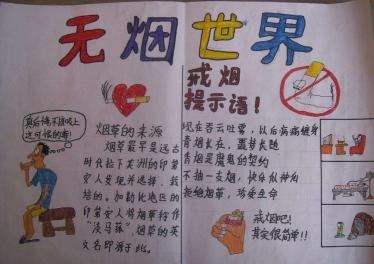 无烟世界
真后悔不该吸上
这可恨的毒!
烟草的来源
烟草最早是远古
时代拉丁美洲的印第
安人发现并选择、栽
培的。加勒比地区的
印第安人将烟草称作
"淡马菰",烟草的英
文名即源于此。
戒烟
提示语!
现在吞云吐雾,以后病痛缠身
香烟长在,噩梦长随
香烟是魔鬼的契约
不抽一支烟,快乐似神仙
拒绝烟草,珍爱生命
戒烟吧!
其实很简单!!